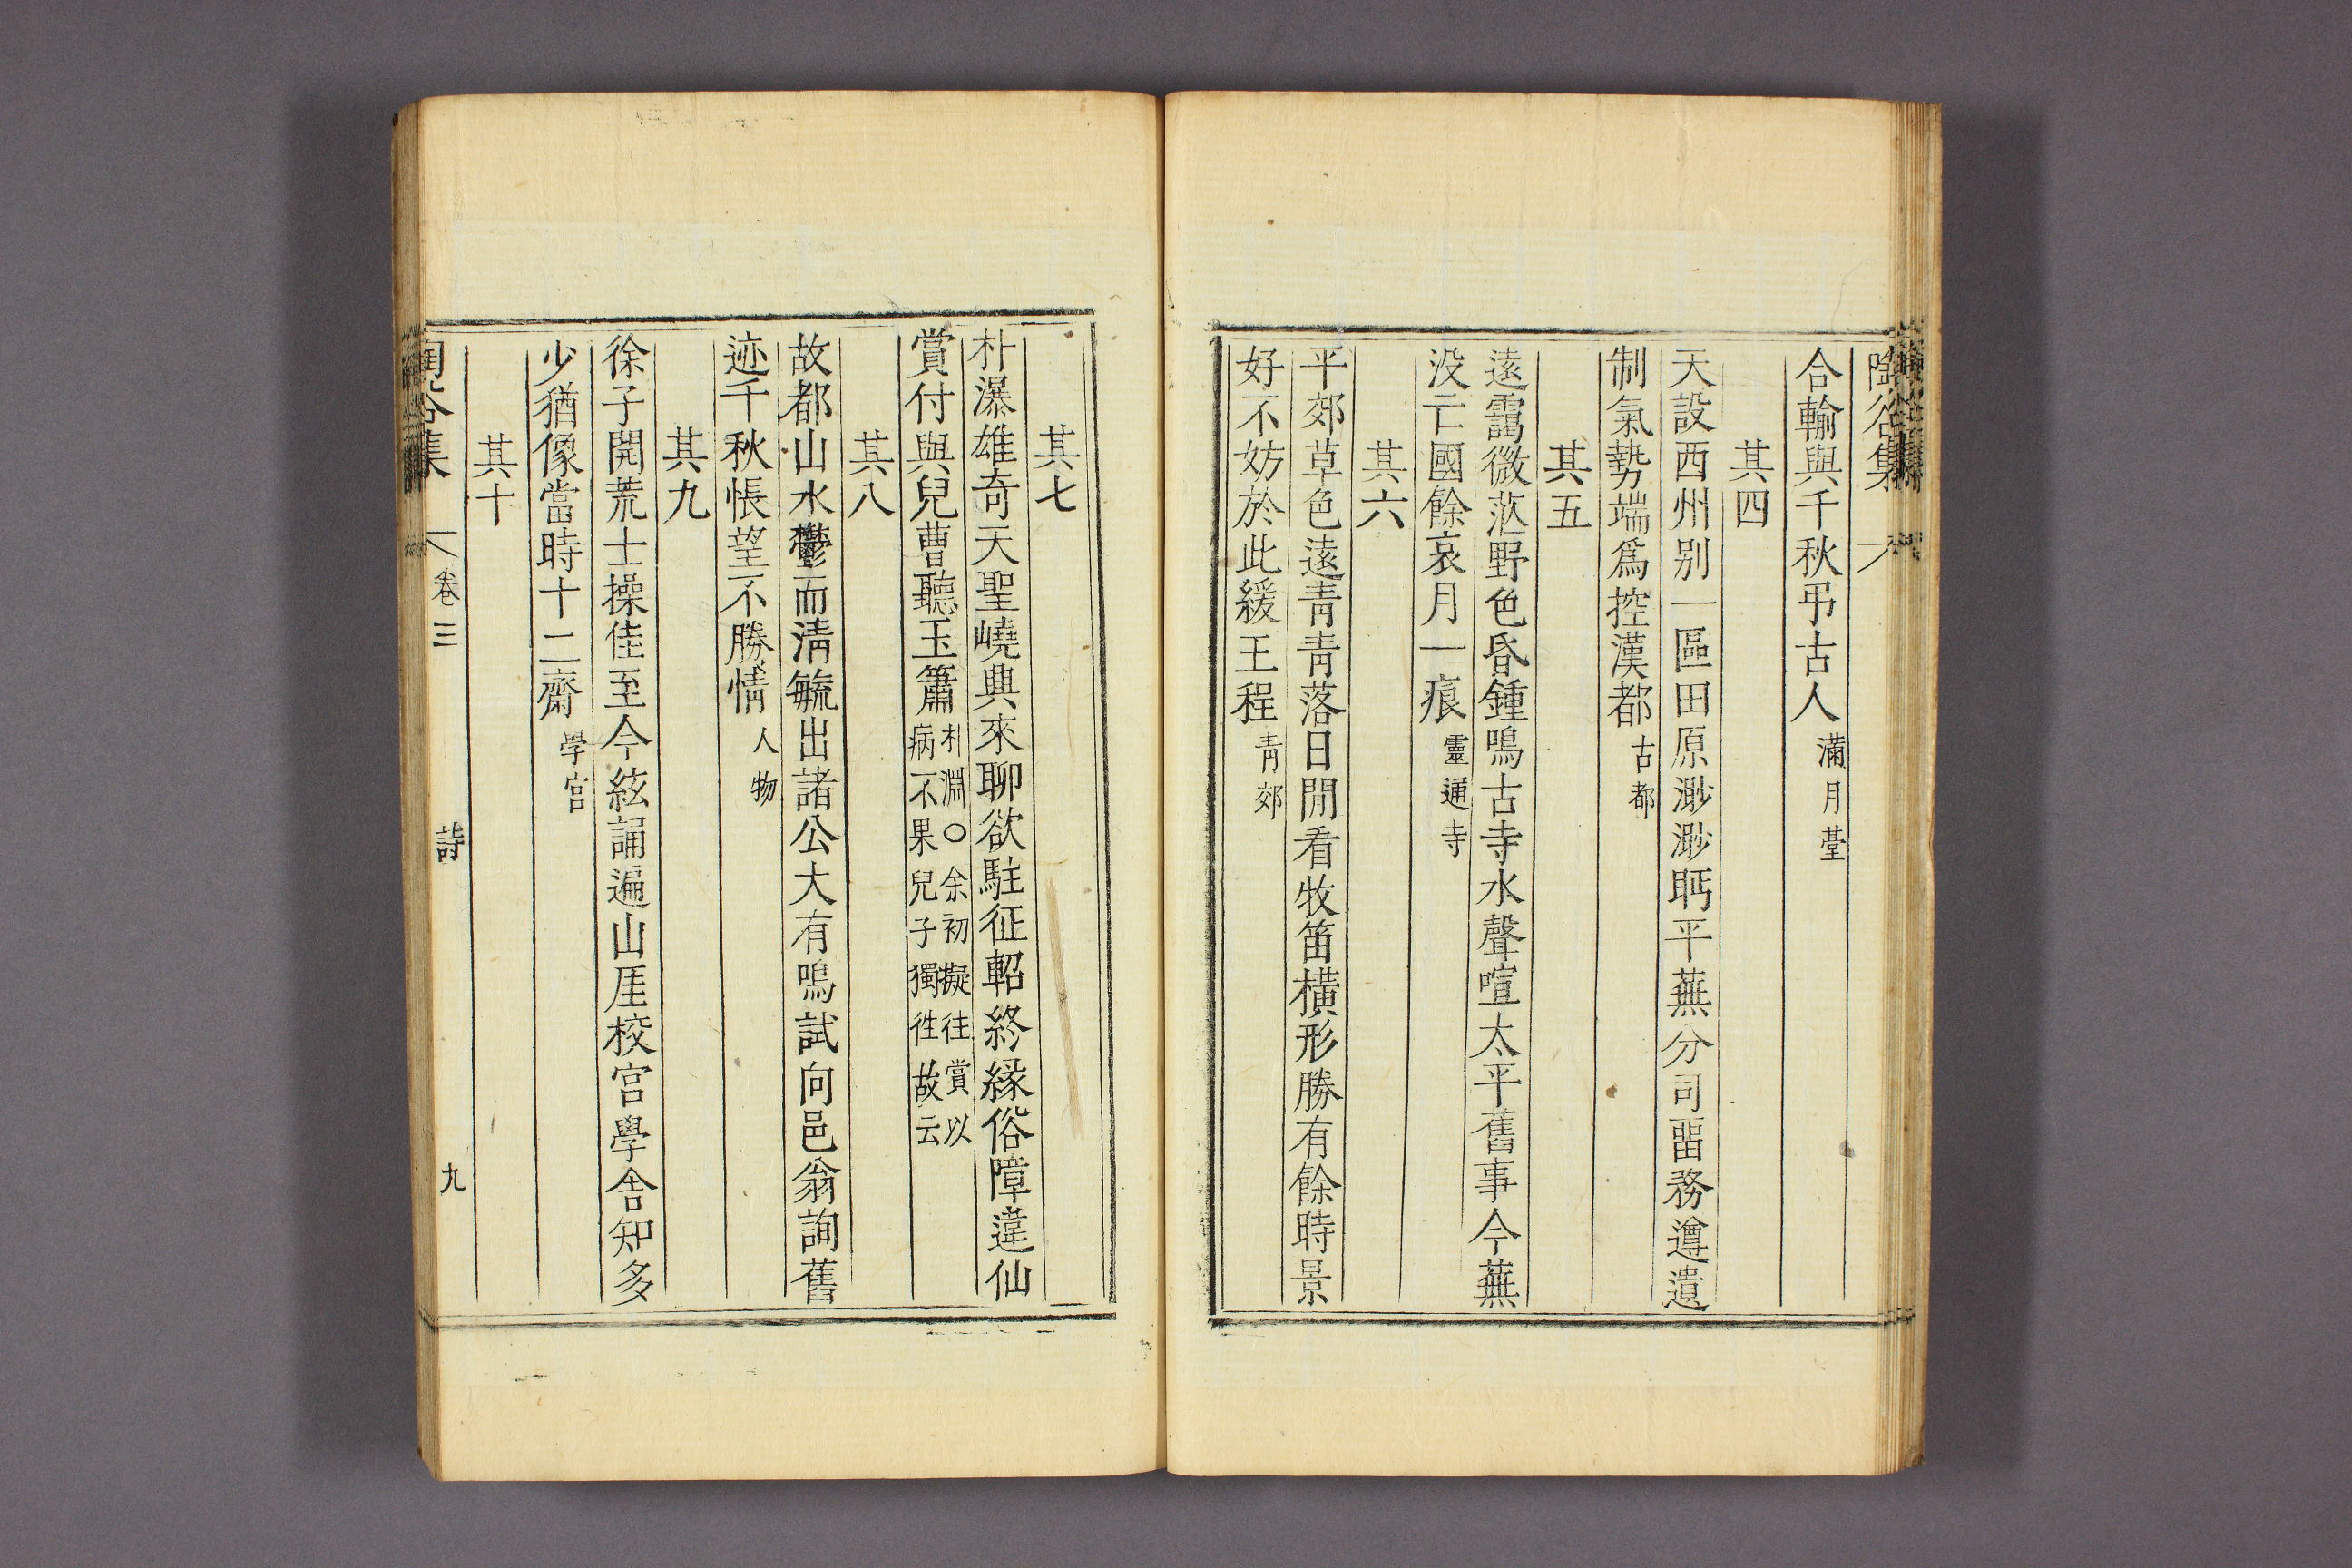 陶谷集
合輸與千秋弔古人 滿月臺
其四
天設西州別一區田原渺渺眄平蕪分司畱務遵遺
制氣勢端爲控漢都 古都
其五
遠靄微茫野色昏鍾鳴古寺水聲喧太平舊事今蕪
沒亡國餘哀月一痕 靈通寺
其六
平郊草色遠青青落日閒看牧笛橫形勝有餘時景
好不妨於此緩王程 青郊
其七
朴瀑雄奇天聖嶢興來聊欲駐征軺終緣俗障違仙
賞付與兒曹聽玉簫 朴淵○余初擬往賞以
病不果兒子獨徃故云
其八
故都山水鬱而清毓出諸公大有鳴試向邑翁詢舊
迹千秋悵望不勝情 人物
其九
徐子開荒士操佳至今絃誦遍山厓校宮學舍知多
少猶像當時十二齋 學宮
其十
陶谷集 卷三 詩 九